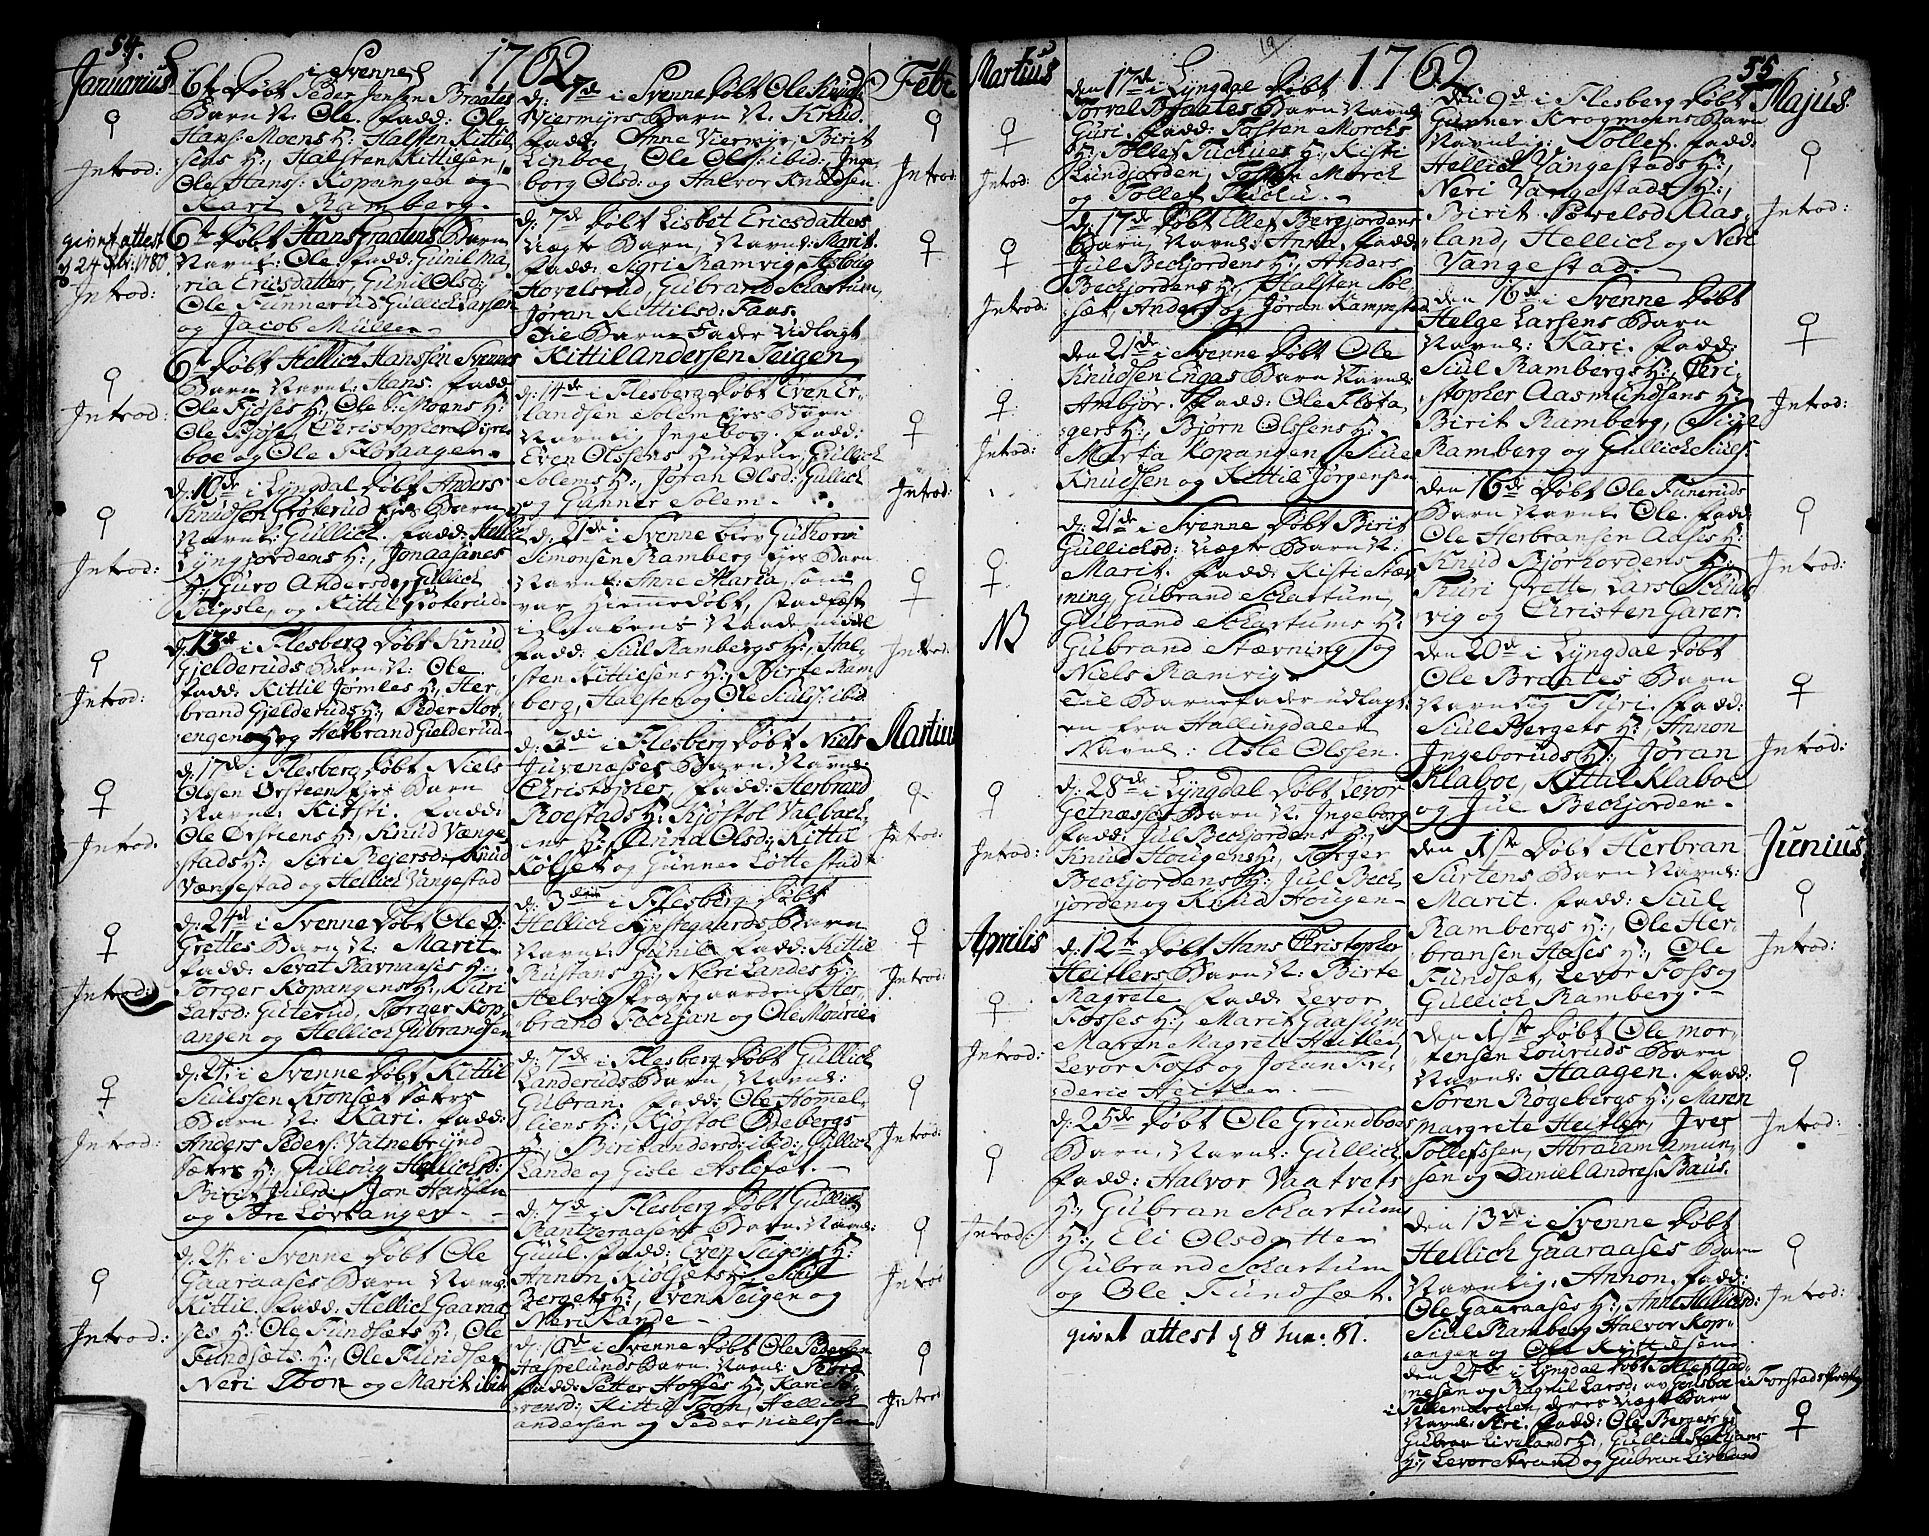 54.
1762
Januarius
6te Døbt i Svenne
Peder Jensen Braates
Barn N: Ole. fadd: Ole
Hans: Moens H: Halsten Kittil
sens H:, Halsten Kittilsen,
Ole Hans: Kopangen og
Kari Ramberg.
Introd:
givet attest
d 24 1780
6te Døbt Hans Braatens Barn
Navnl: Ole. fadd: Gunil Ma
ria Ericsdatter, Gunil Olsd:
Ole Funnerud, Gullich Larsen
og Jacob Müller
Introd:
6te Døbt Hellich Hanssen Svennes
Barn Navnl: Hans. fadd:
Ole Fjøses H:, Ole Moens H:
Ole Fjøse, Christopher Dyre
boe og Ole Flotaagen.
Introd:
d: 10de i Lyngdal Døbt Anders
Knudsen Grøterud Barn
Navnl: Gullich. fadd:
Lyngjordens H:, Jonaasanes
H:, Guro Andersd: Gullich
og Kittil Grøterud
Introd:
d: 13de i Flesberg Døbt Knud
Gjelderuds Barn N: Ole
fadd: Kittil Jømles H:, Her
brand Gjelderuds H:, Peder Hov
engen og Herbrand Gjelderud
Introd:
d: 17de i Flesberg Døbt Niels
Olsen Ørsteen Barn
Navnl: Kirsti. fadd:
Ole Ørsteens H:, Knud Vænge
stads H:, Siri Rejersd: Knud
Vængestad og Hellich Vangestad
Introd:
d: 24de i Svenne Døbt Ole
Grettes Barn N: Marit
fadd: Sevat Ravnaases H:
Torger Kopangens H:, Turi
Larsd: Guterud, Torger Kop
angen og Hellich Gubrandsen
Introd:
d: 24. i Svenne Døbt Kittil
Siulssen Kronsæt
Barn N: Kari. fadd:
Anders Peders: Vatnebrynd
H: Gulloug Hellichsd:
Birit Juulsd: Jon Hansen
og Tore Løvtangen
Introd:
d: 24. i Svenne Døbt Ole
Gaaraases Barn Navnl:
Kittil. fadd. Hellich Gaaraa
ses H: Ole Fundsæts H:, Ole
Fundsæts H:, Ole Fundsæt
Neri Toon og Marit ibid
Introd:
d: 7de i Svenne Døbt Ole Knuds
Viermyrs Barn N. Knud.
fadd: Anne Viermyr, Birit
Linboe, Ole Ols: ibid: Inge
borg Olsd: og Halvor Knudsen
Febr
Introd:
d: 7de Døbt Lisbet Ericsdatters
uægte Barn, Navnl: Marit.
fadd: Sigri Ramvig, Asloug
Hovelsrud, Gubrand Skartum,
Jøran Kittilsd: Fans.
Til Barne Fader Udlagt
Kittil Andersen Teigen
d: 14de i Flesberg Døbt Even Er
landsen Solem Barn
Navnlig Ingeborg. fadd:
Even Olssens Hustrue, Gullich
Solems H:, Jøran Olsd: Gullich
og Gunner Solem.
Introd:
d: 21de i Svenne blev Guthorm
Simonsen Ramberg Barn
Navnl: Anne Maria, som
var hiemmedøbt, stadfæst
i Daabens Naademiddel
fadd: Siul Rambergs H:, Hal
sten Kittilsens H:, Birte Ram
berg, Halsten og Ole Siuls: ibid.
Introd:
Martius
d: 3die i Flesberg Døbt Niels
Juvenæsses Barn. Navnl:
Christopher, fadd: Herbrand
Roestads H:, Kjøstol Valbæch
ens H:, Anna Olsd: Kittil
Kølset og Gunner Littestad
Introd:
d: 3die i Flesberg Døbt
Hellich Barn
Navnl: Gunil. fadd: Kittil
Rustans H:, Neri Landes H:
Helvig Præstgaarden, Her
brand Feckjan og Ole Mourie
Introd:
d: 7de i Flesberg Døbt Gullich
Landeruds Barn, Navnl:
Gubran. fadd: Ole Hommel
liens H:, Kjøstol Ødebergs
H:, Birit Andersd: ibid:, Gullich
Lande og Gisle Aslefæt.
Introd:
d: 7de i Flesberg Døbt Gullich
Rantzeraasens Barn. Navnl:
Guul. fadd: Even Teigens H:
Annon Kiølsæts H: Siul
Bergets H:, Even Teigen og
Neri Rande
Introd
d: 10de i Svenne Døbt Ole Pedersen
Haspelunds Barn. Navnl:
fadd: Petter Hoffes H:,
Kittil Toon, Hellich
andersen og Peder Nielssen
Introd
Martius
19
1762
55
den 17de i Lyngdal Døbt
Torval Braates Barn Navnl:
Guri. fadd: Tosten Morchs
H:, Tollef Tuchues H:, Kisti
Lundjorden, Tosten Morch
og Tollef Tuchu.
Introd:
d: 17de Døbt Ellef Bergjordens
Barn, Navnl: Anna. fadd:
Jul Bechjordens H:, Anders
Bechjordens H:, Halsten Søl
sæt, Anders og Jøran Kampestad
Introd:
den 21de i Svenne Døbt Ole
Knudsen Engas Barn Navnl:
Ambjør. fadd: Ole Flota
gers H:, Bjørn Olssens H:
Marta Kopangen, Siul
Knudsen og Kittil Jørgensen
Introd:
d: 21de i Svenne Døbt Birit
Gullichsd: Uægte Barn N:
Marit. fadd: Kisti Stæv
ning, Gubrand Skartum,
Gubrand Skartums H:
Gubrand Stævning, og
Niels Ramvig.
Til Barnefader udlagt
en fra Hallingdalen
Navnl: Asle Olssen.
NB
d: 28de i Lyngdal Døbt Levor
Getnæsses Barn N. Ingeborg
fadd: Jul Bechjordens H:,
Knud Hougens H:, Torger
Bechjordens H: Jul Bech
jorden og Knud Hougen
Introd:
Aprilis
d: 12te Døbt Hans Christopher
Heitlers Barn N: Birte
Magrete fadd: Levor
Fosses H:, Marit Gaasum
Maren Magrete Heitler,
Levor Foss og Johan Fri
deric Heitler.
Introd:
d: 25de Døbt Ole Grundboes
Barn. Navnl: Gullich
fadd: Halvor Vaatvets
H:, Gubran Skartums
H:, Eli Olsdatter
Gubrand Skartum
og Ole Fundsæt.
Introd:
givet attest d 8 Jun: 81.
Majus
den 9de i Flesberg Døbt
Gunner Krogmoens Barn
Navnlig: Tollef. fadd:
Hellich Vangestads H:,
Neri Vangestads H:,
Birit Povelsd Aas
land, Hellich og Neri
Vangestad.
Introd:
den 16de i Svenne Døbt
Helge Larsens Barn
Navnl: Kari. fadd:
Siul Rambergs H:, Chri
stopher Aasmundsens H:
Birit Ramberg, Siul
Ramberg og Gullich Siuls
Introd:
den 16de Døbt Ole Funeruds
Barn Navnl: Ole. fadd
Ole Herbransen Aases H:
Knud Bjørhordens H:
Turi Grette, Lars
vig og Christen Garer.
Introd:
den 20de i Lyngdal Døbt
Ole Braates Barn
Navnlig Turi. fadd:
Siul Bergets H:, Annon
Ingeboruds H:, Jøran
Klaboe, Kittil Klaboe
og Jul Bechjorden.
Introd:
Junius
den 1ste Døbt Herbran
Surtens Barn Navnl:
Marit. fadd: Siul
Rambergs H:, Ole Her
bransen Aases H:, Ole
Fundsæt, Levor Foss og
Gullich Ramberg.
Introd:
den 1ste Døbt Ole Mor
tensen Louruds Barn
Navnl: Haagen. fadd:
Søren Rogebergs H:, Maren
Margrete Heitler, Iver
Tollefssen, Abraham Amun
sen og Daniel Andres: Baus.
Introd:
den 13de i Svenne Døbt
Hellich Gaaraases Barn
Navnlig, Annon. fadd:
Ole Gaaraases H:, Anne Hellichsd:
Siul Ramberg Halvor Kop
angen og Ole Kittilsen
Introd:
den 24de i Lyngdal Døbt
nesen og Magnil Larsd: av Gonsboe i Forstads
i Tellemarchen, deres Uægte Barn
Navnl: Siri. fadd: Ole Bergers H:
Gubran Livelands H:, Gullich Stechjans
H:, Levor Strand og Gubran Liveland